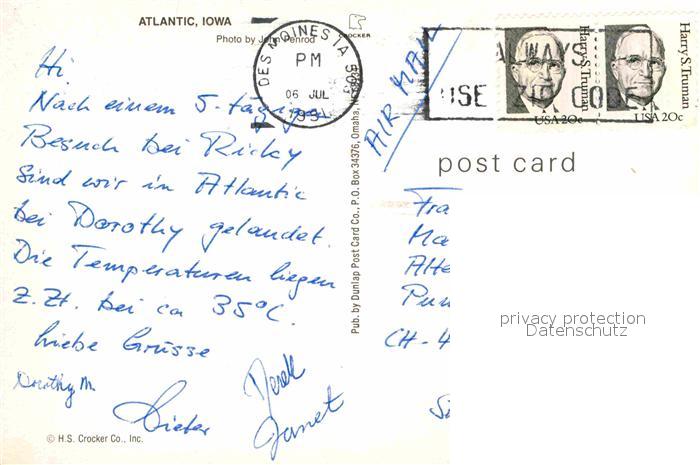 ATLANTIC, IOWA
Photo by John Penrod
CROCKER
Hi
Nach einem 5-tägigen
Besuch bei Ricky
sind wir in Atlantic
bei Dorothy gelandet.
Die Temperaturen liegen
z.Zt. bei ca 35°C.
Liebe Grüsse
Dorothy M.
Dieter
Derek
Janet
© H.S. Crocker Co., Inc.
Pub. by Dunlap Post Card Co., P.O. Box 34376, Omaha,
DES MOINES IA
PM
06 JUL
AIR MAIL
ALWAYS
USE ZIP CODE
Harry S. Truman
USA 20c
Harry S. Truman
USA 20c
post card
Fra
Ma
Alte
Pun
CH-4
privacy protection
Datenschutz